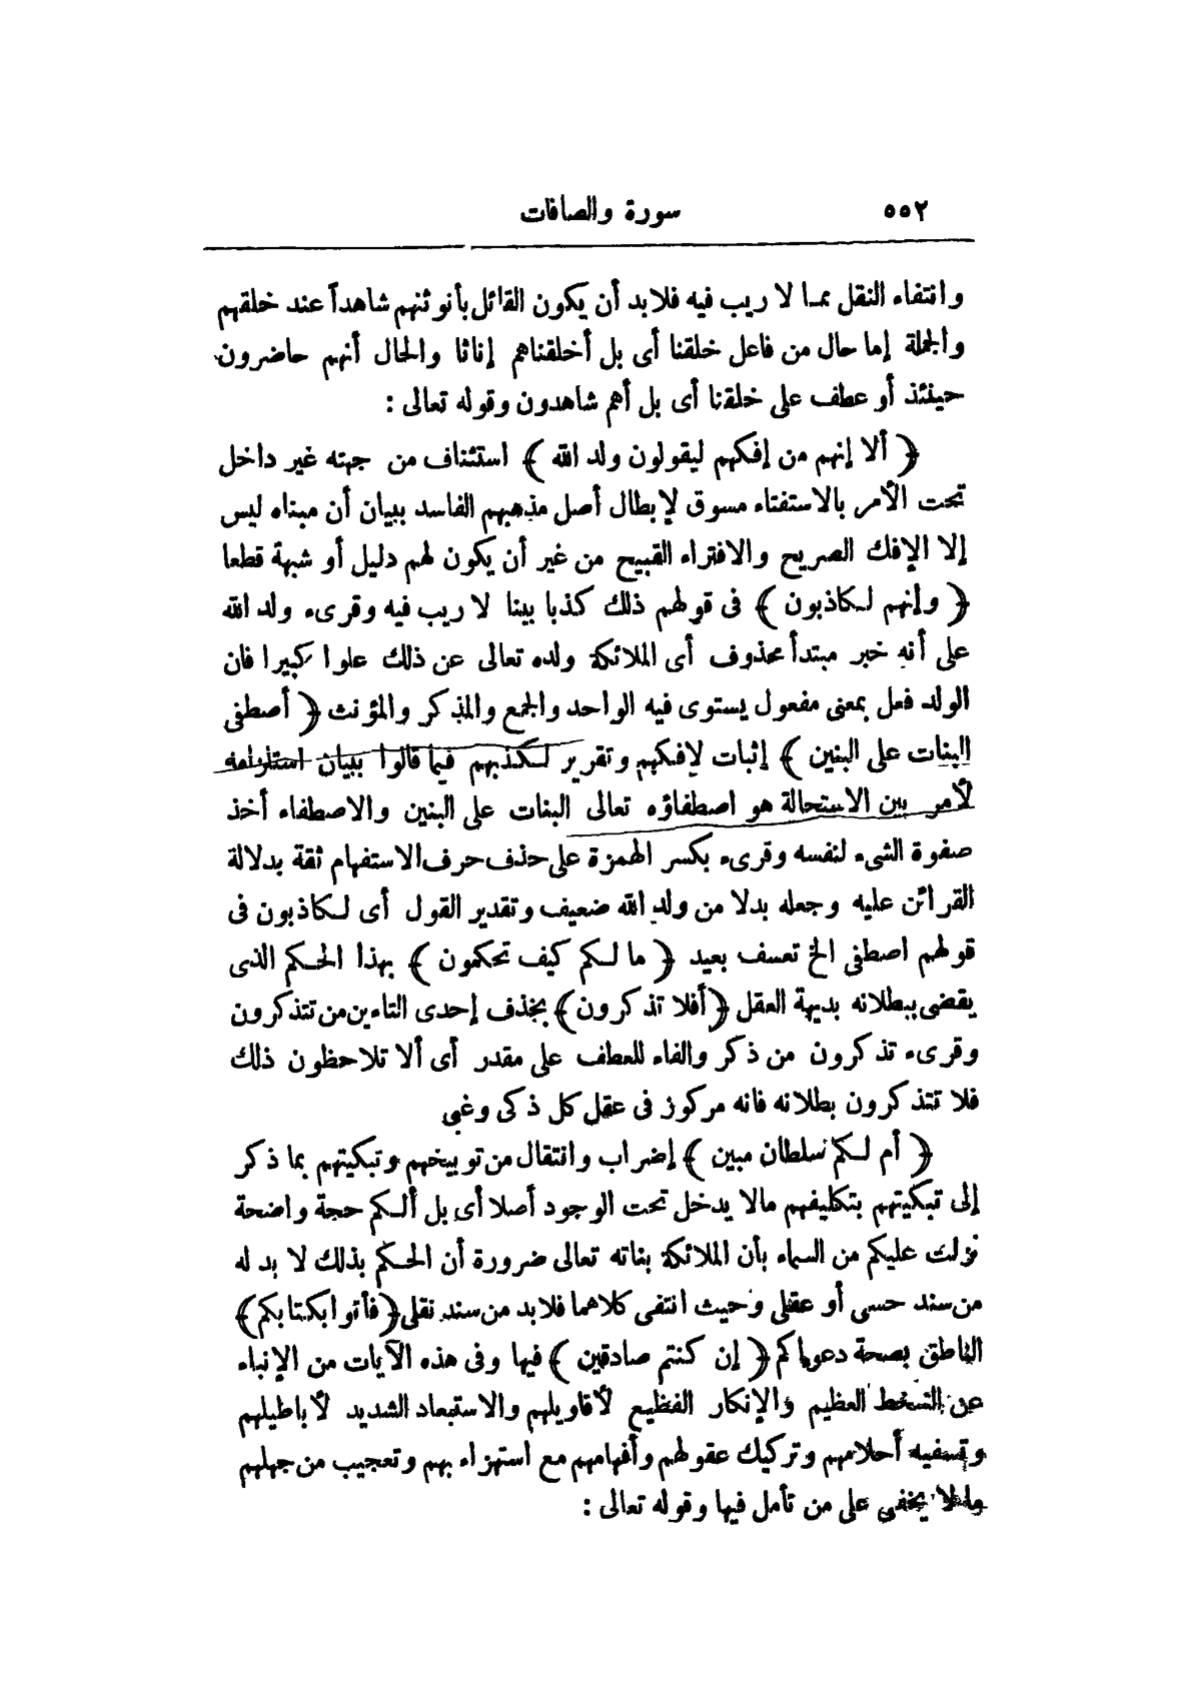 ٥٥٢ سورة والصافات
وانتفاء النقل مما لا ريب فيه فلابد أن يكون القائل بأنوثتهم شاهداً عند خلقهم
والجملة إما حال من فاعل خلقنا أى بل أخلقناهم إناثا والحال أنهم حاضرون
حينئذ أو عطف على خلقنا أى بل أهم شاهدون وقوله تعالى :
﴿ ألا إنهم من إفكهم ليقولون ولد الله ﴾ استئناف من جهته غير داخل
تحت الأمر بالاستفتاء مسوق لإبطال أصل مذهبهم الفاسد ببيان أن مبناه ليس
إلا الإفك الصريح والافتراء القبيح من غير أن يكون لهم دليل أو شبهة قطعا
﴿ وإنهم لكاذبون ﴾ فى قولهم ذلك كذبا بينا لا ريب فيه وقرىء ولد الله
على أنه خبر مبتدأ محذوف أى الملائكة ولده تعالى عن ذلك علوا كبيرا فان
الولد فعل بمعنى مفعول يستوى فيه الواحد والجمع والمذكر والمؤنث ﴿ أصطفى
البنات على البنين ﴾ إثبات لإفكهم وتقرير لكذبهم فيما قالوا ببيان استلزامه
لأمر بين الاستحالة هو اصطفاؤه تعالى البنات على البنين والاصطفاء أخذ
صفوة الشىء لنفسه وقرىء بكسر الهمزة على حذف حرف الاستفهام ثقة بدلالة
القرائن عليه وجعله بدلا من ولد الله ضعيف وتقدير القول أى لكاذبون فى
قولهم اصطفى الخ تعسف بعيد ﴿ ما لكم كيف تحكمون ﴾ بهذا الحكم الذى
يقضى ببطلانه بديهة العقل ﴿ أفلا تذكرون ﴾ بحذف إحدى التاءين من تتذكرون
وقرىء تذكرون من ذكر والفاء للعطف على مقدر أى ألا تلاحظون ذلك
فلا تتذكرون بطلانه فانه مركوز فى عقل كل ذكى وغبى
﴿ أم لكم سلطان مبين ﴾ إضراب وانتقال من توبيخهم وتبكيتهم بما ذكر
إلى تبكيتهم بتكليفهم مالا يدخل تحت الوجود أصلا أى بل ألكم حجة واضحة
نزلت عليكم من السماء بأن الملائكة بناته تعالى ضرورة أن الحكم بذلك لا بد له
من سند حسى أو عقلى وحيث انتفى كلاهما فلابد من سند نقلى ﴿ فأتوا بكتابكم ﴾
الناطق بصحة دعواكم ﴿ إن كنتم صادقين ﴾ فيها وفى هذه الآيات من الإنباء
عن السخط العظيم والإنكار الفظيع لأقاويلهم والاستبعاد الشديد لأباطيلهم
وتسفيه أحلامهم وتركيك عقولهم وأفهامهم مع استهزاء بهم وتعجيب من جهلهم
مالا يخفى على من تأمل فيها وقوله تعالى :